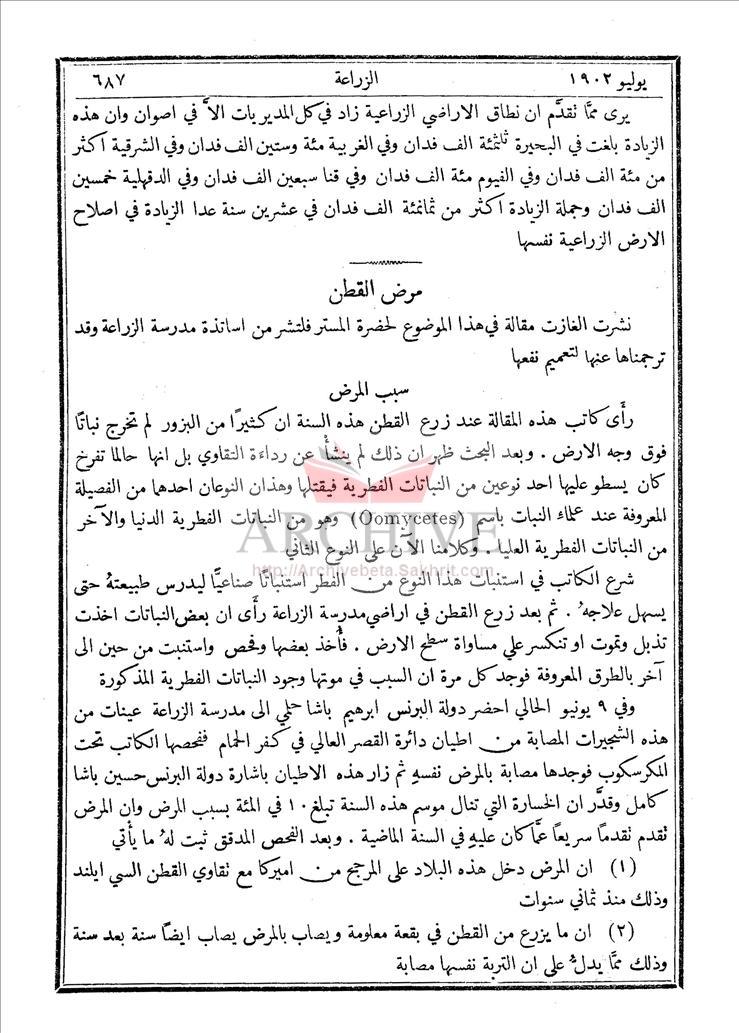 يوليو ١٩٠٢ الزراعة ٦٨٧
يرى ممَّا تقدَّم ان نطاق الاراضي الزراعية زاد في كل المديريات الاَّ في اصوان وان هذه
الزيادة بلغت في البحيرة ثلثمئة الف فدان وفي الغربية مئة وستين الف فدان وفي الشرقية اكثر
من مئة الف فدان وفي الفيوم مئة الف فدان وفي قنا سبعين الف فدان وفي الدقهلية خمسين
الف فدان وجملة الزيادة اكثر من ثمانمئة الف فدان في عشرين سنة عدا الزيادة في اصلاح
الارض الزراعية نفسها
مرض القطن
نشرت الغازت مقالة في هذا الموضوع لحضرة المستر فلتشر من اساتذة مدرسة الزراعة وقد
ترجمناها عنها لتعميم نفعها
سبب المرض
رأَى كاتب هذه المقالة عند زرع القطن هذه السنة ان كثيرًا من البزور لم تخرج نباتًا
فوق وجه الارض . وبعد البحث ظهر ان ذلك لم ينشأْ عن رداءة التقاوي بل انها حالما تفرخ
كان يسطو عليها احد نوعين من النباتات الفطرية فيقتلها وهذان النوعان احدهما من الفصيلة
المعروفة عند علماء النبات باسم (Oomycetes) وهو من النباتات الفطرية الدنيا والآخر
من النباتات الفطرية العليا . وكلامنا الآن على النوع الثاني
شرع الكاتب في استنبات هذا النوع من الفطر استنباتًا صناعيًّا ليدرس طبيعتهُ حتى
يسهل علاجهُ . ثم بعد زرع القطن في اراضي مدرسة الزراعة رأَى ان بعض النباتات اخذت
تذبل وتموت او تنكسر على مساواة سطح الارض . فأُخذ بعضها وفحص واستنبت من حين الى
آخر بالطرق المعروفة فوجد كل مرة ان السبب في موتها وجود النباتات الفطرية المذكورة
وفي ٩ يونيو الحالي احضر دولة البرنس ابرهيم باشا حلمي الى مدرسة الزراعة عينات من
هذه الشجيرات المصابة من اطيان دائرة القصر العالي في كفر الحمام ففحصها الكاتب تحت
المكرسكوب فوجدها مصابة بالمرض نفسهِ ثم زار هذه الاطيان باشارة دولة البرنس حسين باشا
كامل وقدَّر ان الخسارة التي تنال موسم هذه السنة تبلغ ١٠ في المئة بسبب المرض وان المرض
تقدم تقدمًا سريعًا عمَّا كان عليهِ في السنة الماضية . وبعد الفحص المدقق ثبت لهُ ما يأتي
(١) ان المرض دخل هذه البلاد على المرجح من اميركا مع تقاوي القطن السي ايلند
وذلك منذ ثماني سنوات
(٢) ان ما يزرع من القطن في بقعة معلومة ويصاب بالمرض يصاب ايضًا سنة بعد سنة
وذلك ممَّا يدلُّ على ان التربة نفسها مصابة
ARCHIVE
http://Archivebeta.Sakhrit.com